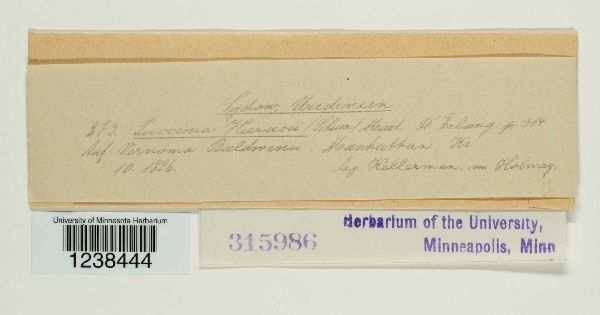 Sydow, Uredineen
273. Puccinia Hieracii (Schum) Mart. p 304
Auf Vernonia Baldwinii. Manhattan, Ks
10. 1886. leg. Kellerman, com Holway.
University of Minnesota Herbarium
1238444
315986
Herbarium of the University,
Minneapolis, Minn